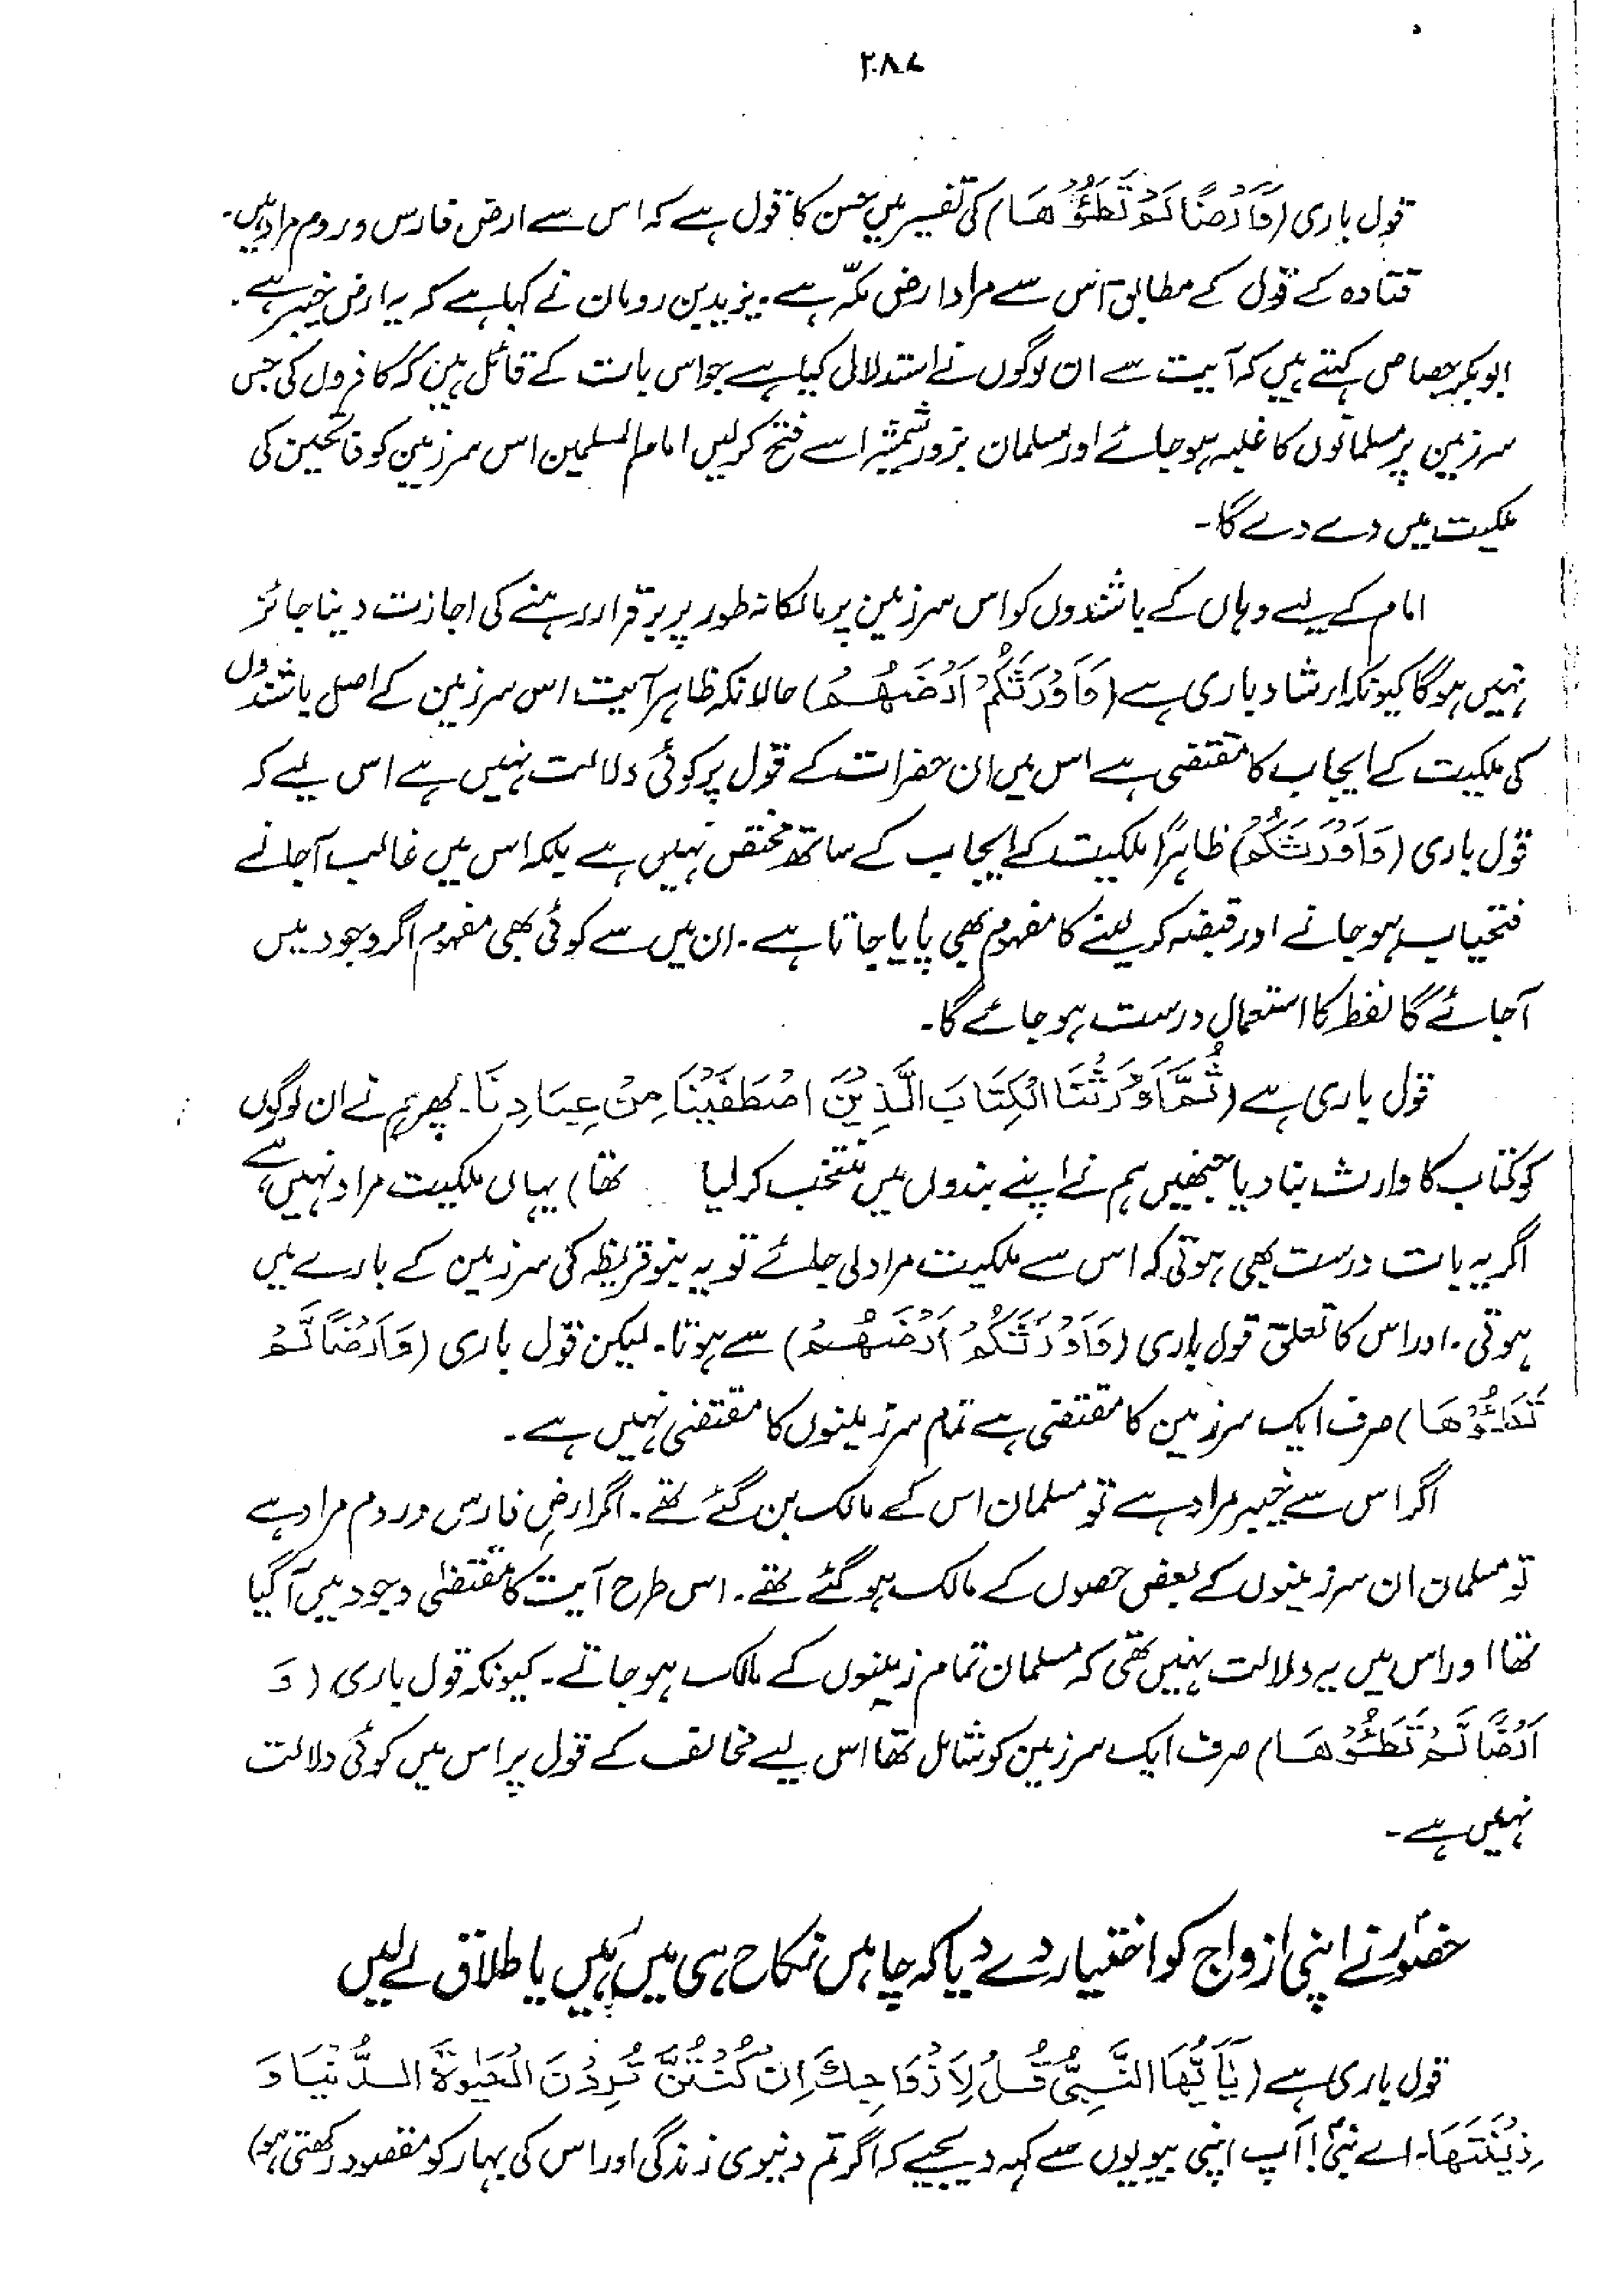 ۲۸۷
قول باری (وَاَرْضًا لَمْ تَطَؤُوْهَا) کی تفسیر میں حسن کا قول ہے کہ اس سے ارض فارس و روم مراد ہیں۔
قتادہ کے قول کے مطابق اس سے مراد ارض مکّہ ہے۔ یزید بن رومان نے کہا ہے کہ یہ ارض خیبر ہے۔
ابوبکر جصاص کہتے ہیں کہ آیت سے ان لوگوں نے استدلال کیا ہے جو اس بات کے قائل ہیں کہ کافروں کی جس
سرزمین پر مسلمانوں کا غلبہ ہو جائے اور مسلمان بزور شمشیر اسے فتح کرلیں امام المسلمین اس سرزمین کو فاتحین کی
ملکیت میں دے دے گا۔
امام کے لیے وہاں کے باشندوں کو اس سرزمین پر مالکانہ طور پر برقرار رہنے کی اجازت دینا جائز
نہیں ہوگا کیونکہ ارشاد باری ہے (وَاَوْرَثَكُمْ اَرْضَهُمْ) حالانکہ ظاہر آیت اس سرزمین کے اصل باشندوں
کی ملکیت کے ایجاب کا مقتضی ہے اس میں ان حضرات کے قول پر کوئی دلالت نہیں ہے اس لیے کہ
قول باری (وَاَوْرَثَكُمْ) ظاہراً ملکیت کے ایجاب کے ساتھ مختص نہیں ہے بلکہ اس میں غالب آجانے
فتحیاب ہو جانے اور قبضہ کر لینے کا مفہوم بھی پایا جاتا ہے۔ ان میں سے کوئی بھی مفہوم اگر وجود میں
آجائے گا لفظ کا استعمال درست ہو جائے گا۔
قول باری ہے (ثُمَّ اَوْرَثْنَا الْكِتَابَ الَّذِيْنَ اصْطَفَيْنَا مِنْ عِبَادِنَا۔ پھر ہم نے ان لوگوں
کو کتاب کا وارث بنا دیا جنھیں ہم نے اپنے بندوں میں منتخب کر لیا تھا) یہاں ملکیت مراد نہیں ہے
اگر یہ بات درست بھی ہوتی کہ اس سے ملکیت مراد لی جائے تو یہ بنو قریظہ کی سرزمین کے بارے میں
ہوتی۔ اور اس کا تعلق قول باری (وَاَوْرَثَكُمْ اَرْضَهُمْ) سے ہوتا۔ لیکن قول باری (وَاَرْضًا لَّمْ
تَطَئُوْهَا) صرف ایک سرزمین کا مقتضی ہے تمام سرزمینوں کا مقتضی نہیں ہے۔
اگر اس سے خیبر مراد ہے تو مسلمان اس کے مالک بن گئے تھے۔ اگر ارضِ فارس و روم مراد ہے
تو مسلمان ان سرزمینوں کے بعض حصوں کے مالک ہو گئے تھے۔ اس طرح آیت کا مقتضیٰ وجود میں آگیا
تھا اور اس میں یہ دلالت نہیں تھی کہ مسلمان تمام زمینوں کے مالک ہو جاتے۔ کیونکہ قول باری (وَ
اَرْضًا لَّمْ تَطَئُوْهَا) صرف ایک سرزمین کو شامل تھا اس لیے مخالف کے قول پر اس میں کوئی دلالت
نہیں ہے۔
حضورؐ نے اپنی ازواج کو اختیار دے دیا کہ چاہیں نکاح ہی میں رہیں یا طلاق لے لیں
قول باری ہے (يٰٓاَيُّهَا النَّبِيُّ قُلْ لِاَزْوَاجِكَ اِنْ كُنْتُنَّ تُرِدْنَ الْحَيٰوةَ الدُّنْيَا وَ
زِيْنَتَهَا۔ اے نبیؐ! آپ اپنی بیویوں سے کہہ دیجیے کہ اگر تم دنیوی زندگی اور اس کی بہار کو مقصود رکھتی ہو)